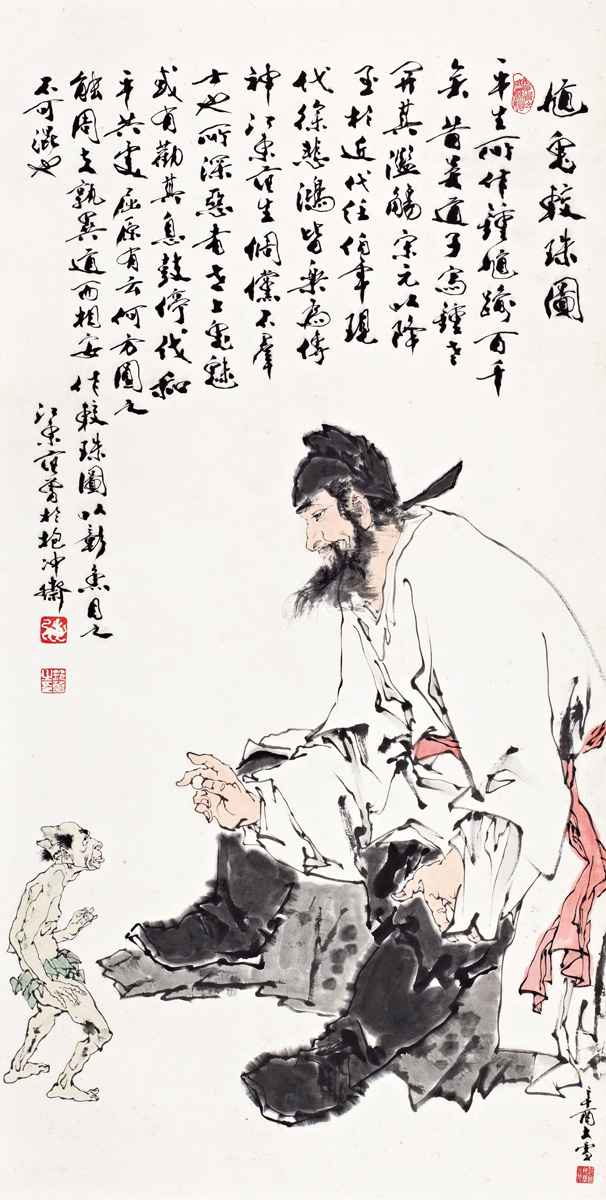 馗鬼較珠圖
平生所作鍾馗踰百千
矣昔吳道子寫鍾老
開其濫觴宋元以降
至於近代任伯年現
代徐悲鴻皆樂為傳
神江東范生倜儻不羣
士也所深惡者世上鬼魅
或有勸其息鼓停伐和
平共處屈原有云何方圜之
能周夫孰異道而相安作較珠圖以彰魚目之
不可混也
江東范曾於抱冲齋
辛酉大雪